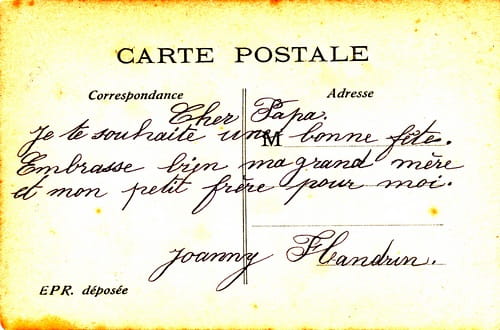 CARTE POSTALE
Correspondance
Adresse
Cher Papa.
Je te souhaite une bonne fête.
M
Embrasse bien ma grand mère
et mon petit frère pour moi.
Joanny Flandrin.
EPR. déposée